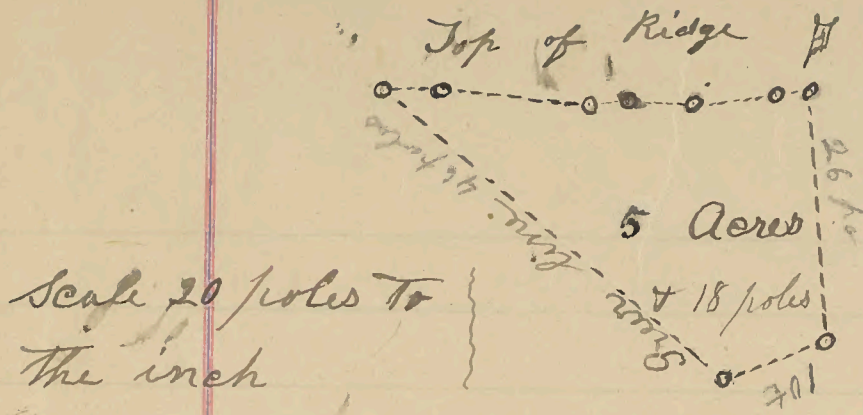 Top of Ridge
26 po
46 poles
5 Acres
+ 18 poles
Line
Scale 20 poles to
the inch